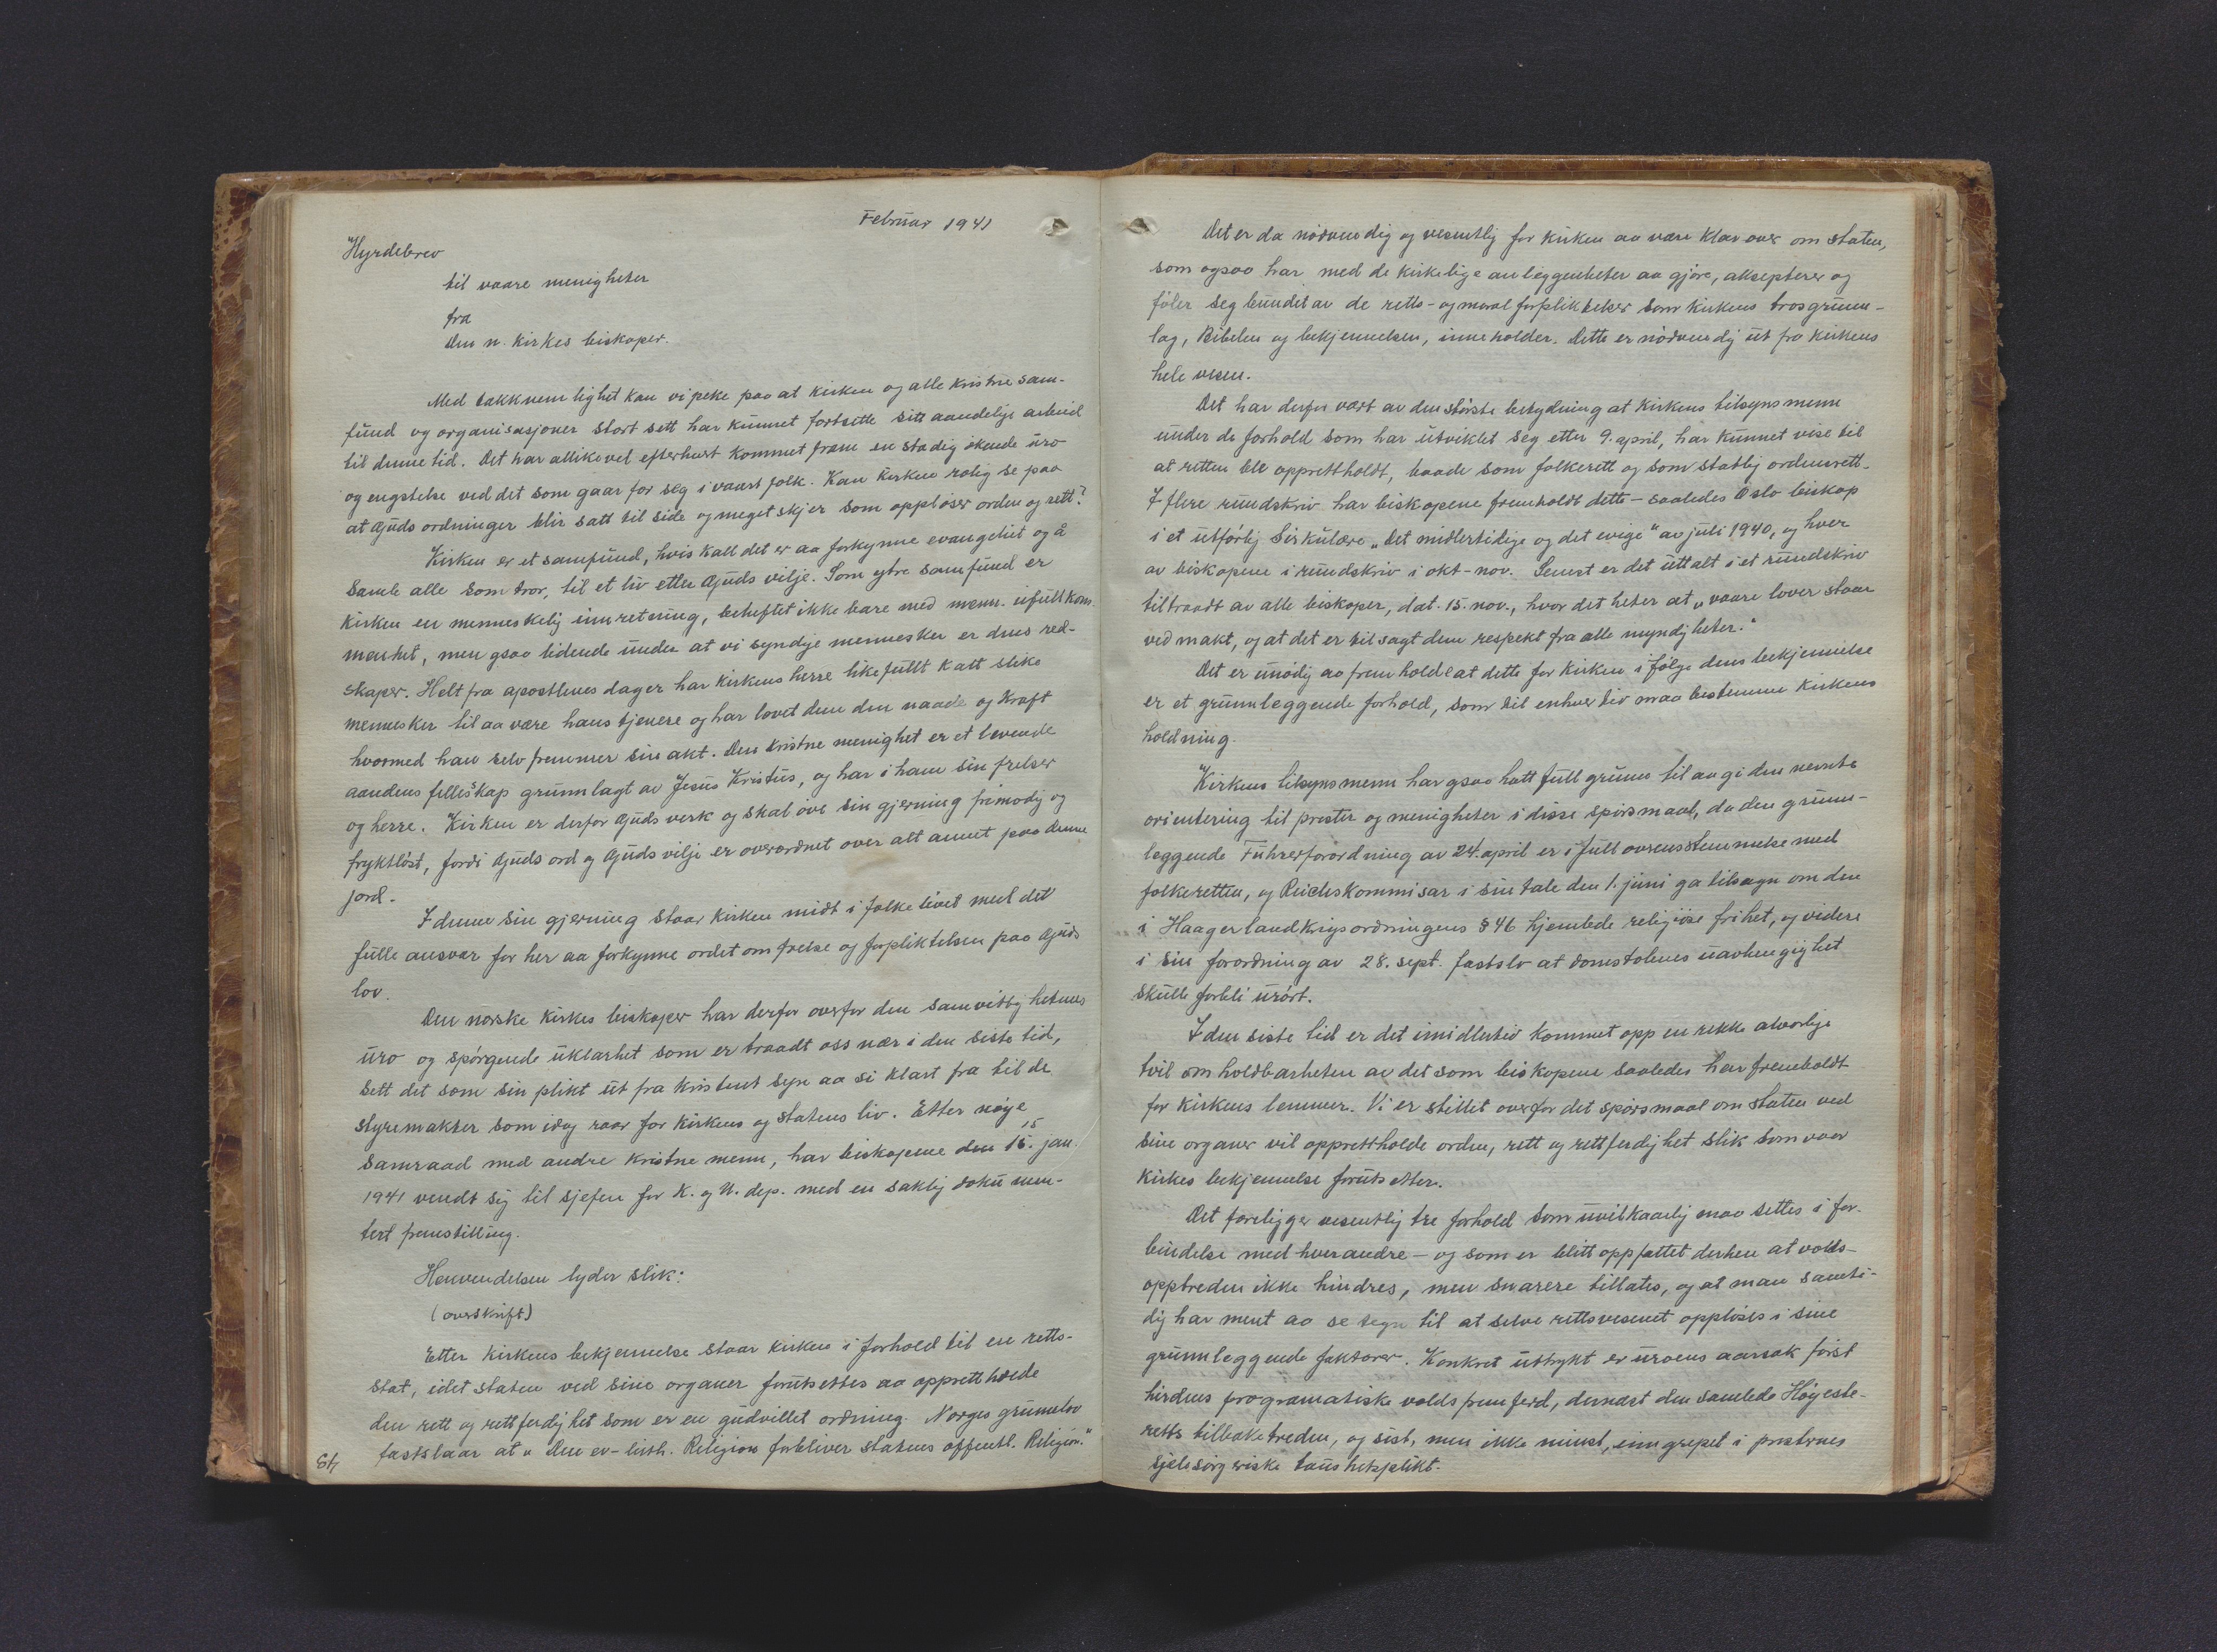 Februar 1941
Hyrdebrev
til vaare menigheter
fra
Den n. kirkes biskoper.
Med takknemlighet kan vi peke paa at kirken og alle kristne sam-
fund og organisasjoner stort sett har kunnet fortsette sitt aandelige arbeid
til denne tid. Det har allikevel efterhvert kommet fram en stadig ökende uro
og engstelse ved det som gaar for seg i vaart folk. Kan kirken rolig se paa
at Guds ordninger blir satt til side og meget skjer som opplöser orden og rett?
Kirken er et samfund, hvis kall det er aa forkynne evangeliet og å
samle alle som tror, til et liv etter Guds vilje. Som ytre samfund er
kirken en menneskelig innretning, beheftet ikke bare med menn. ufullkom-
menhet, men gsaa lidende under at vi syndige mennesker er dens red-
skaper. Helt fra apostlenes dager har kirkens herre likefullt kalt slike
mennesker til aa være hans tjenere og har lovet dem den naade og kraft
hvormed han selv fremmer sin akt. Den kristne menighet er et levende
aandens felleskap grunnlagt av Jesus Kristus, og har i ham sin frelser
og herre. Kirken er derfor Guds verk og skal öve sin gjerning frimodig og
fryktlöst, fordi Guds ord og Guds vilje er overordnet over alt annet paa denne
jord.
I denne sin gjerning staar kirken midt i folkelivet med det
fulle ansvar for her aa forkynne ordet om frelse og forpliktelsen paa Guds
lov.
Den norske kirkes biskoper har derfor overfor den samvittighetenes
uro og spörgende uklarhet som er traadt oss nær i den siste tid,
sett det som sin plikt ut fra kristent syn aa si klart fra til de
styremakter som idag raar for kirkens og statens liv. Etter nöye
samraad med andre kristne menn, har biskopene den 15. jan.
1941 vendt sig til sjefen for K. og U. dep. med en saklig doku men-
tert fremstilling.
Henvendelsen lyder slik:
(overskrift)
Etter kirkens bekjennelse staar kirken i forhold til en retts-
stat, idet staten ved sine organer forutsettes aa opprettholde
den rett og rettferdighet som er en gudvillet ordning. Norges grunnlov
fastslaar at „ Den ev-luth. Religion forbliver statens offentl. Religion."
84
Det er da nödvendig og vesentlig for kirken aa være klar over om staten,
som ogsaa har med de kirkelige anleggenheter aa gjöre, aksepterer og
föler seg bundet av de retts- og moral forpliktelser som kirkens trosgrunn-
lag, Bibelen og bekjennelsen, inneholder. Dette er nödvendig ut fra kirkens
hele vesen.
Det har derfor vært av den störste betydning at kirkens tilsynsmenn
under de forhold som har utviklet seg etter 9. april, har kunnet vise til
at retten ble opprettholdt, baade som folkerett og som statlig ordensrett.
I flere rundskriv har biskopene fremholdt dette - saaledes Oslo biskop
i et utförlig Sirkulære „Det midlertidige og det evige" av juli 1940, og hver
av biskopene i rundskriv i okt-nov. Senest er det uttalt i et rundskriv
tiltraadt av alle biskoper, dat. 15. nov., hvor det heter at „vaare lover staar
ved makt, og at det er tilsagt dem respekt fra alle myndigheter."
Det er unödig aa fremholde at dette for kirken i fölge dens bekjennelse
er et grunnleggende forhold, som til enhver tid maa bestemme kirkens
holdning.
Kirkens tilsynsmenn har gsaa hatt full grunn til aa gi den nevnte
orientering til prester og menigheter i disse spörsmaal, da den grunn-
leggende Führerforordning av 24. april er i full overensstemmelse med
folkeretten, og Reichskommisar i sin tale den 1. juni ga tilsagn om den
i Haager landkrigsordningens § 46 hjemlede religiöse frihet, og videre
i sin forordning av 28. sept. fastslo at domstolenes uavhengighet
skulle forbli urört.
I den siste tid er det imidlertid kommet opp en rekke alvorlige
tvil om holdbarheten av det som biskopene saaledes har fremholdt
for kirkens lemmer. Vi er stillet overfor det spörsmaal om staten ved
sine organer vil opprettholde orden, rett og rettferdighet slik som vaar
kirkes bekjennelse forutsetter.
Det foreligger vesentlig tre forhold som uvilkaarlig maa settes i for-
bindelse med hverandre - og som er blitt oppfattet derhen at volds-
opptreden ikke hindres, men snarere tillates, og at man samti-
dig har ment aa se tegn til at selve rettsvesenet opplöses i sine
grunnleggende faktorer. Konkret uttrykt er uroens aarsak först
hirdens programatiske voldsfremferd, dernæst den samlede Höyeste-
retts tilbaketreden, og sist, men ikke minst, inngrepet i prestenes
sjelesörgeriske taushetsplikt.